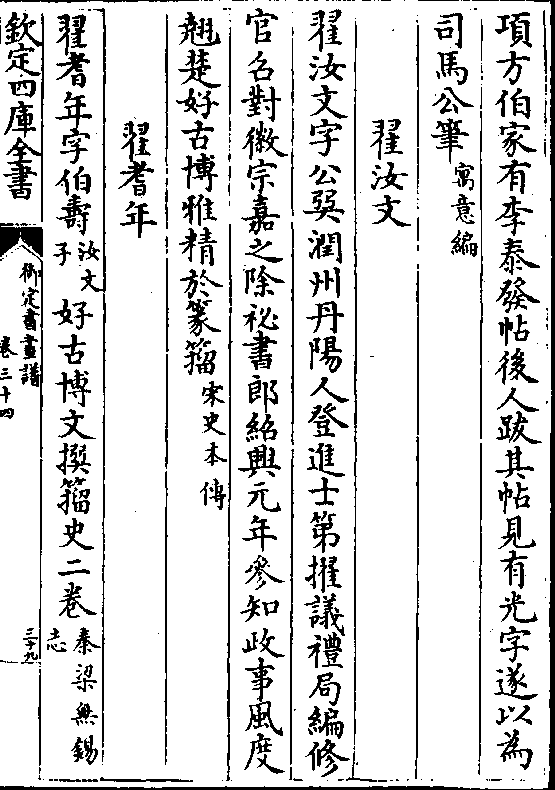 項方伯家有李泰發帖後人跋其帖見有光字遂以為
司馬公筆寓意編
翟汝文
翟汝文字公巽潤州丹陽人登進士第擢議禮局編修
官名對徽宗嘉之除祕書郎紹興元年參知政事風度
翹楚好古博雅精於篆籀宋史本傳
翟耆年
翟耆年字伯壽汝文子好古博文撰籀史二卷秦梁無錫志
欽定四庫全書
御定書畫譜
卷三十四
三十九